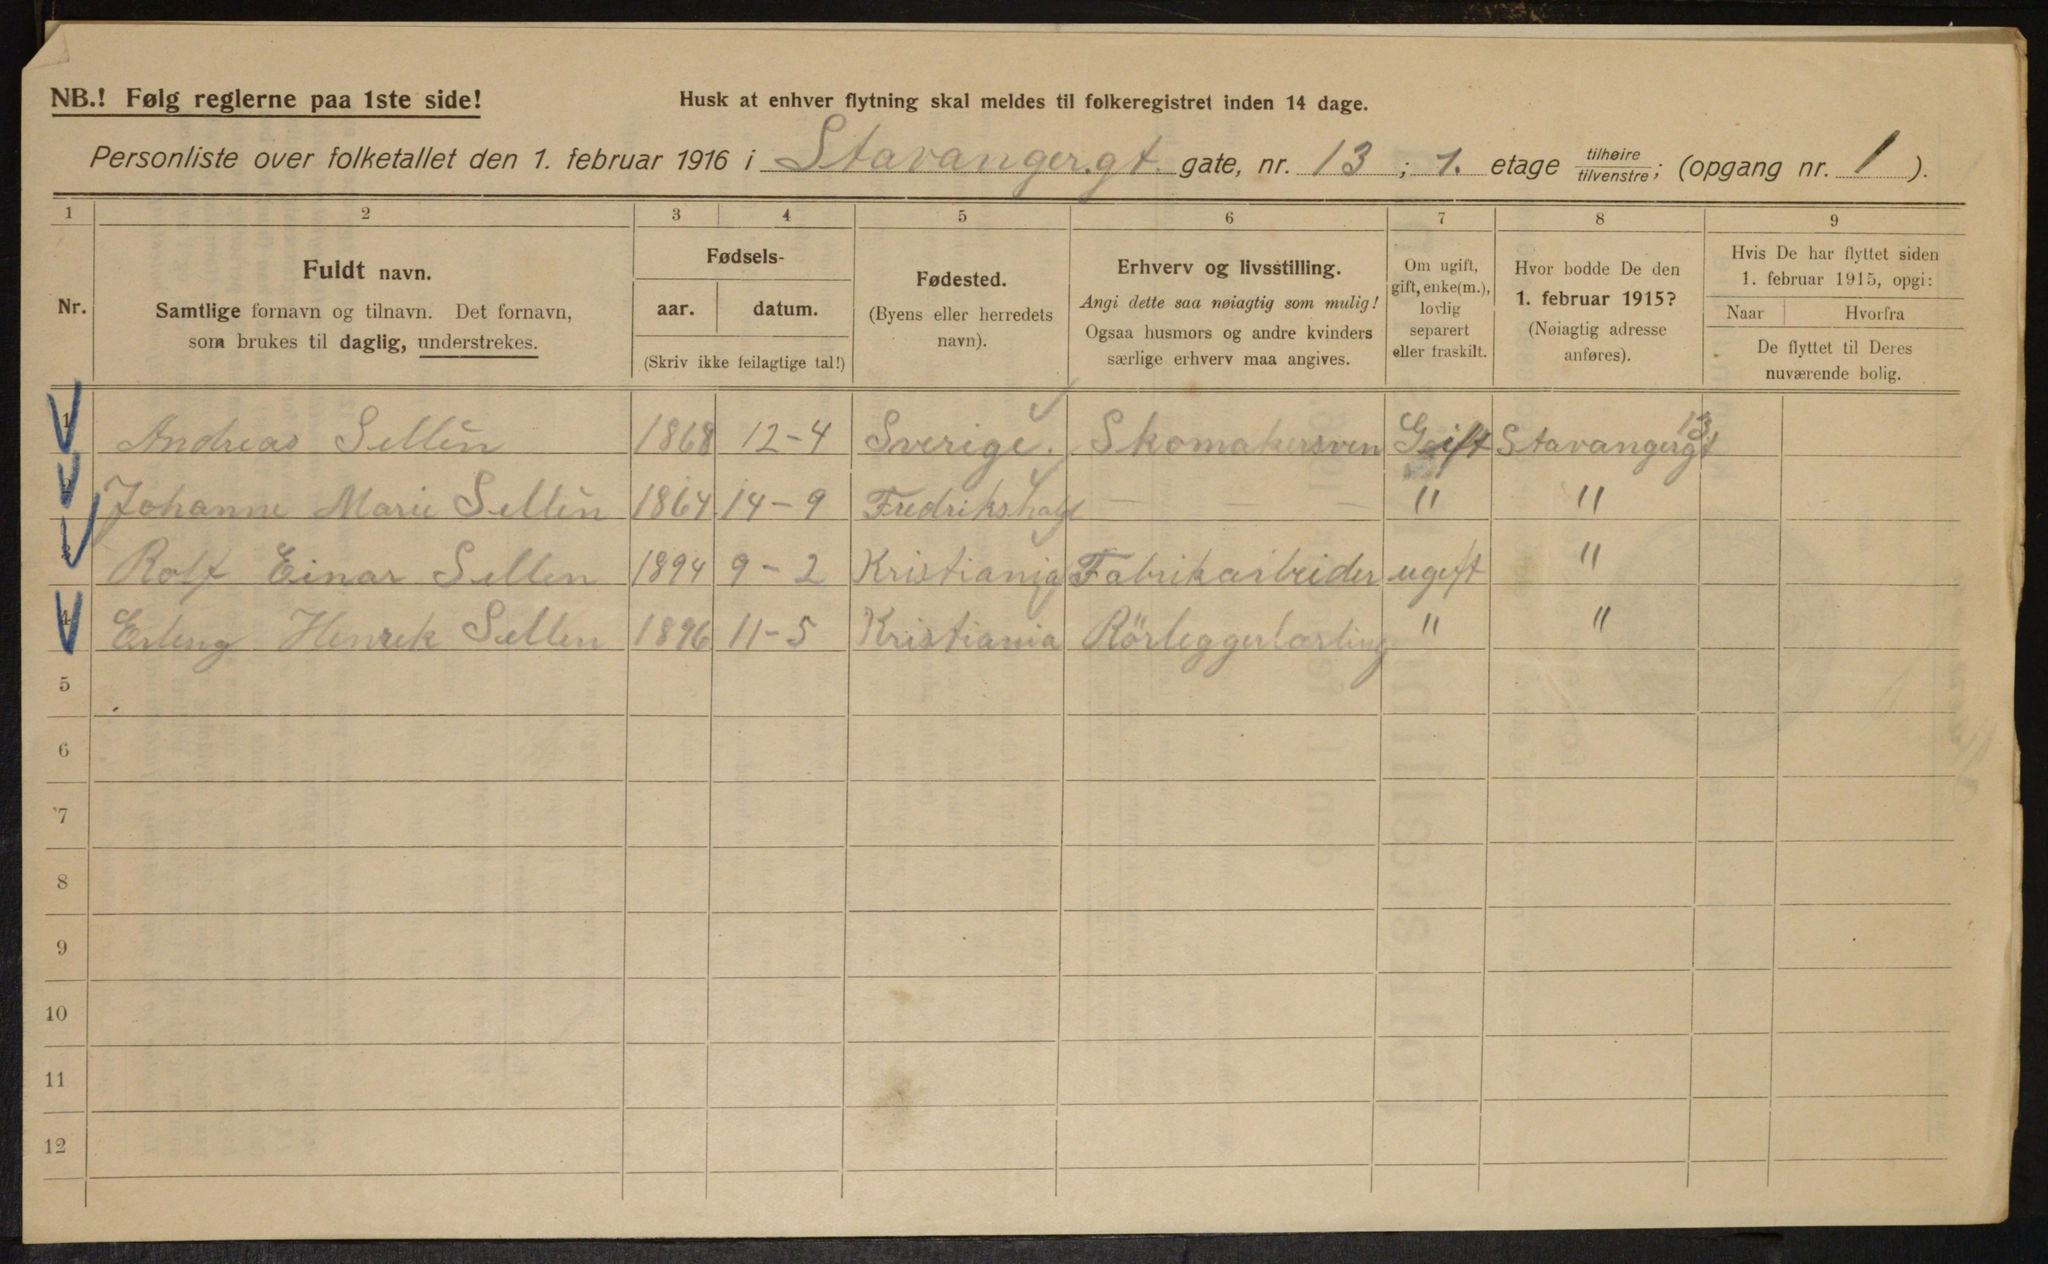 NB.! Følg reglerne paa 1ste side!
Husk at enhver flytning skal meldes til folkeregistret inden 14 dage.
Personliste over folketallet den 1. februar 1916 i Stavanger.gt. gate, nr. 13; 1. etage tilhøire tilvenstre; (opgang nr. 1).
1 2 3 4 5 6 7 8 9
Nr.
Fuldt navn.
Samtlige fornavn og tilnavn. Det fornavn,
som brukes til daglig, understrekes.
Fødsels-
aar. datum.
(Skriv ikke feilagtige tal!)
Fødested.
(Byens eller herredets
navn).
Erhverv og livsstilling.
Angi dette saa nøiagtig som mulig!
Ogsaa husmors og andre kvinders
særlige erhverv maa angives.
Om ugift,
gift, enke(m.),
lovlig
separert
eller fraskilt.
Hvor bodde De den
1. februar 1915?
(Nøiagtig adresse
anføres).
Hvis De har flyttet siden
1. februar 1915, opgi:
Naar Hvorfra
De flyttet til Deres
nuværende bolig.
1 Andreas Sellén 1868 12-4 Sverige. Skomakersven Gift Stavangergt 13
2 Johanne Marie Sellén 1864 14-9 Fredrikshald — — — " "
3 Rolf Einar Sellen 1894 9-2 Kristiania Fabrikarbeider ugift "
4 Erling Henrik Sellen 1896 11-5 Kristiania Rörleggerlærling " "
5
6
7
8
9
10
11
12